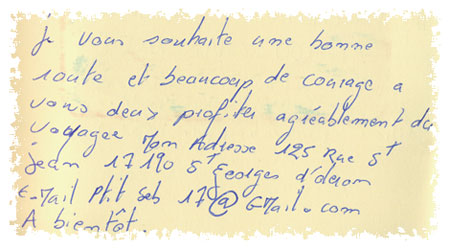 je vous souhaite une bonne
route et beaucoup de courage a
vous deux profiter agréablement du
voyagee Mon Adresse 125 Rue St
jean 17190 St Georges d'oleron
E-Mail Ptit Seb 17@GMail.com
A bientôt.